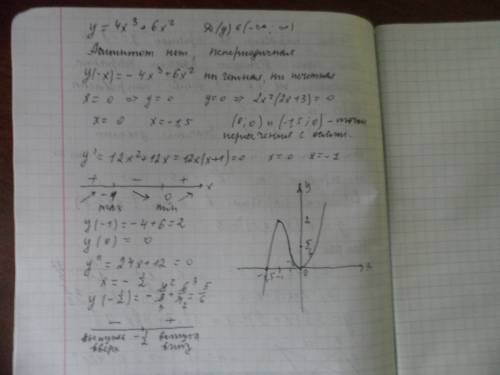 y = 4x³ + 6x² D(y) ∈ (-∞; ∞)
Асимптот нет, непериодичная
y(-x) = -4x³ + 6x² ни четная, ни нечетная
x = 0 ⇒ y = 0 y = 0 ⇒ 2x²(2x+3) = 0
x = 0 x = -1,5 (0; 0) и (-1,5; 0) - точки
пересечения с осями.
y' = 12x² + 12x = 12x(x+1) = 0 x = 0 x = -1
+ - +
-1 0 x
max min
y(-1) = -4 + 6 = 2
y(0) = 0
y'' = 24x + 12 = 0
x = -1/2
y(-1/2) =
- +
выпукла -1/2 выпукла
вверх вниз
y
2
-1,5 -1 0 x